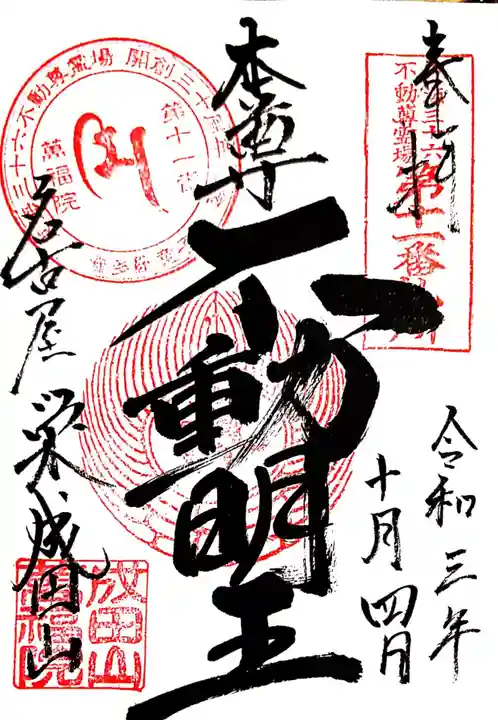 奉拝
不動尊霊場
第十一番
令和三年
十月四日
本尊
不動明王
三十六不動尊霊場 開創三十
第十一番
萬福院
名古屋 栄 成田山
成田山
萬福院